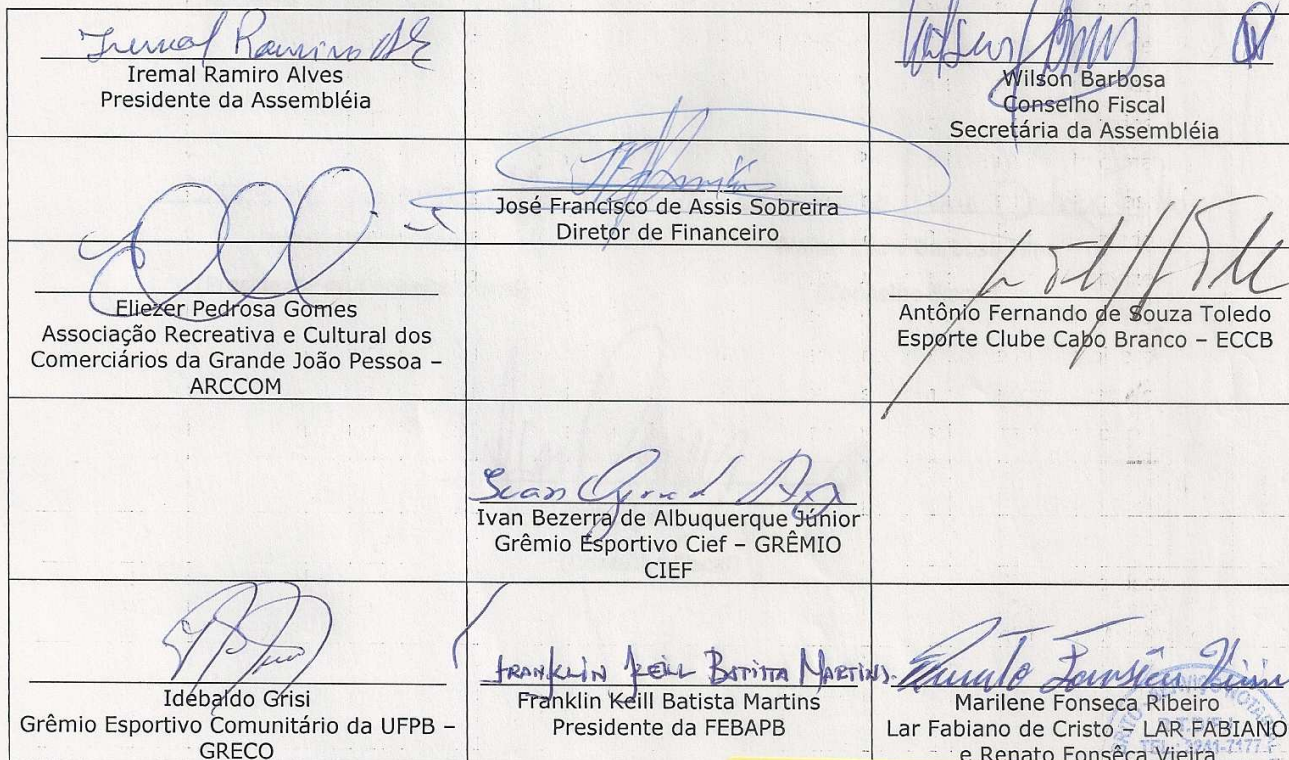 Iremal Ramiro Alves
Iremal Ramiro Alves
Presidente da Assembléia
Wilson Barbosa
Conselho Fiscal
Secretária da Assembléia
José Francisco de Assis Sobreira
Diretor de Financeiro
Eliezer Pedrosa Gomes
Associação Recreativa e Cultural dos
Comerciários da Grande João Pessoa –
ARCCOM
Antônio Fernando de Souza Toledo
Esporte Clube Cabo Branco – ECCB
Ivan Bezerra de Albuquerque Júnior
Grêmio Esportivo Cief – GRÊMIO
CIEF
Idebaldo Grisi
Grêmio Esportivo Comunitário da UFPB –
GRECO
FRANKLIN KEILL BATISTA MARTINS.
Franklin Keill Batista Martins
Presidente da FEBAPB
Renato Fonsêca Vieira
Marilene Fonseca Ribeiro
Lar Fabiano de Cristo – LAR FABIANO
e Renato Fonsêca Vieira
TEL.: 3241-7177